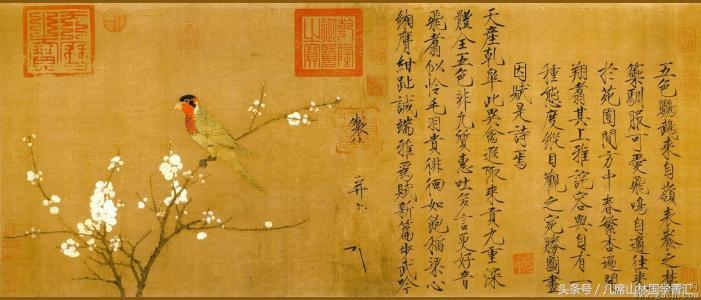 五色鸚鵡來自嶺表養之禁
籞馴服可愛飛鳴自適往來
於苑囿間方中春繁杏遍開
翔翥其上雅詫容與自有一
種態度縱目觀之宛勝圖畫
因賦是詩焉
天產乾皋此異禽遐陬來貢九重深
體全五色非凡質惠吐多言更好音
飛翥似憐毛羽貴徘徊如飽稻粱心
緗膺紺趾誠端雅為賦新篇步武吟
製
并
头条号 / 几席山林国学菁汇